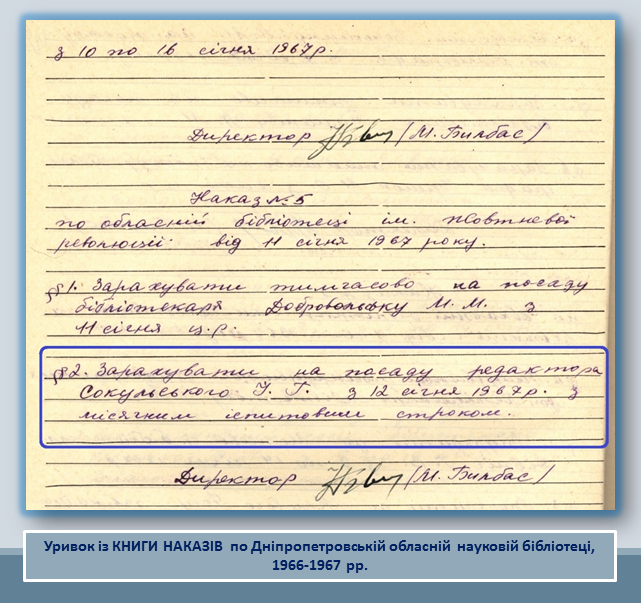 з 10 по 16 січня 1967 р.
Директор (М. Білбас)
Наказ № 5
по обласній бібліотеці ім. Жовтневої
революції від 11 січня 1967 року.
§1. Зарахувати тимчасово на посаду
бібліотекаря Добровольську М. М. з
11 січня ц.р.
§2. Зарахувати на посаду редактора
Сокульського І. Г. з 12 січня 1967 р. з
місячним іспитовим строком.
Директор (М. Білбас)
Уривок із КНИГИ НАКАЗІВ по Дніпропетровській обласній науковій бібліотеці,
1966-1967 рр.